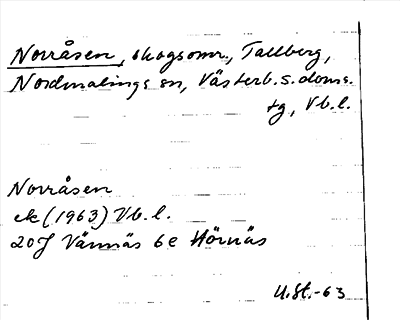 Norråsen, skogsomr., Tallberg,
Nordmalings sn, Västerb. s. doms.
tg, Vb. l.
Norråsen
ek (1963) Vb. l.
20J Vännäs 6e Hörnäs
U.St.-63